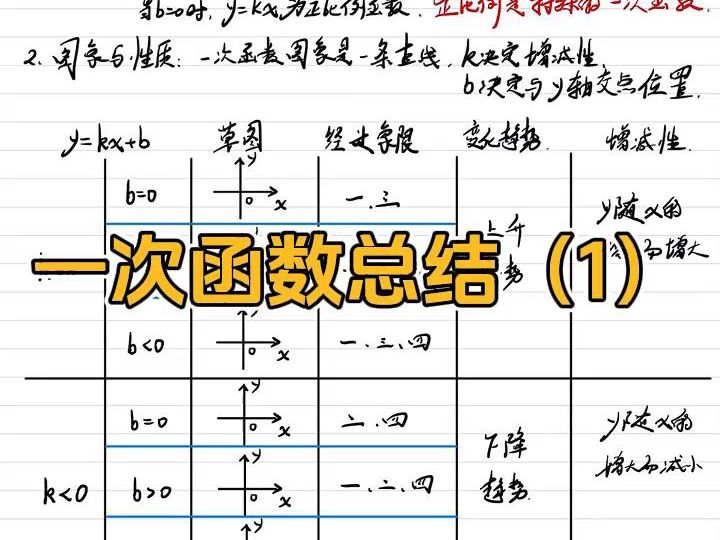 当b=0时,y=kx,为正比例函数.正比例是特殊的一次函数.
2.图象与性质:一次函数图象是一条直线,k决定增减性,
b决定与y轴交点位置.
y=kx+b 草图 经过象限 变化趋势. 增减性.
b=0 y 0 x 一.三 y随x的
上升 增大
一次函数总结(1)
势
b<0 0 x 一.三.四
b=0 y 0 x 二.四 y随x的
下降 增大而减小
k<0 b>0 y 0 x 一.二.四 趋势.
y